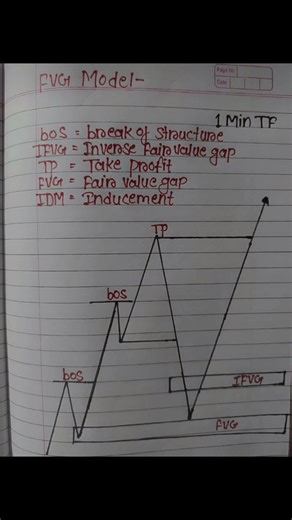 Page No.
Date
FVG Model-
1 Min TF
bos = break of structure
IFVG = Inverse fair value gap
TP = Take profit
FVG = Fair value gap
IDM = Inducement
TP
bos
bos
IFVG
FVG